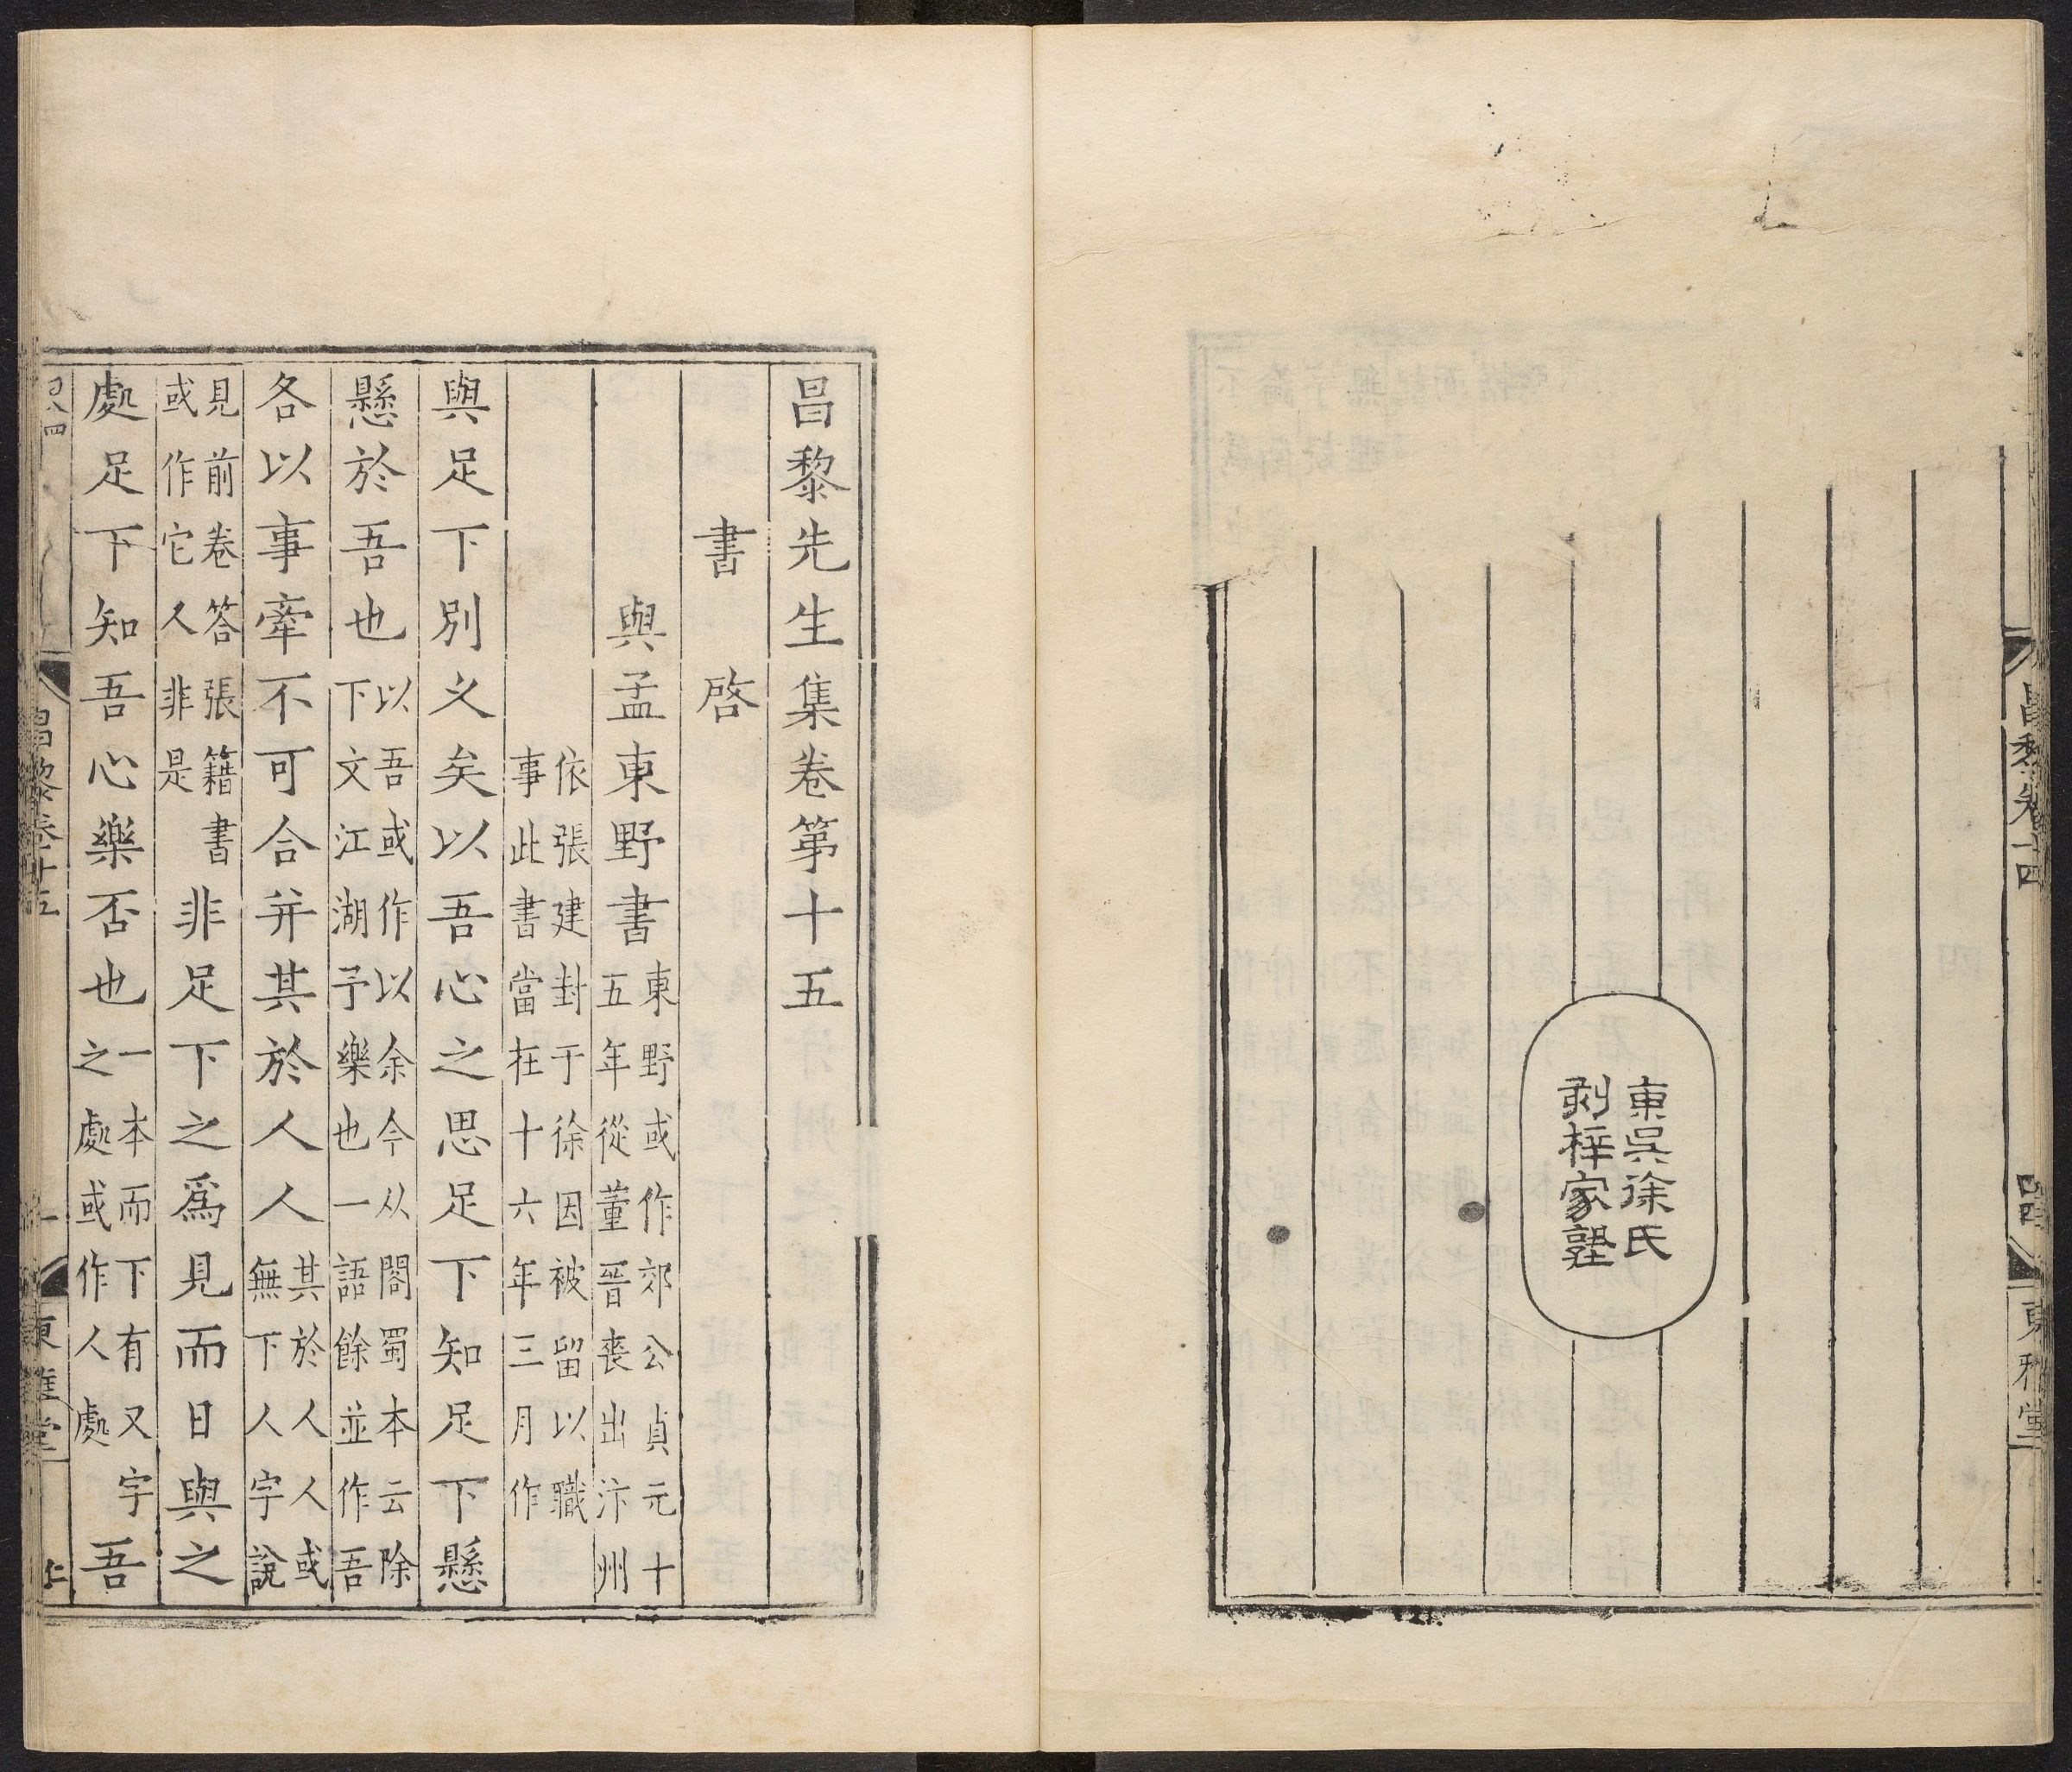 昌黎卷十四
東雅堂
東吳徐氏
剥梓家塾
昌黎先生集卷第十五
書 啓
與孟東野書東野或作郊公貞元十
五年從董晉喪出汴州
依張建封于徐因被留以職
事此書當在十六年三月作
與足下別乆矣以吾心之思足下知足下懸
懸於吾也以吾或作以余今从閣蜀本云除
下文江湖予樂也一語餘並作吾
各以事牽不可合并其於人人其於人人或
無下人字說
見前卷答張籍書
或作它人非是非足下之爲見而日與之
處足下知吾心樂否也一本而下有又字
之處或作人處吾
昌黎卷十五
一
東雅堂